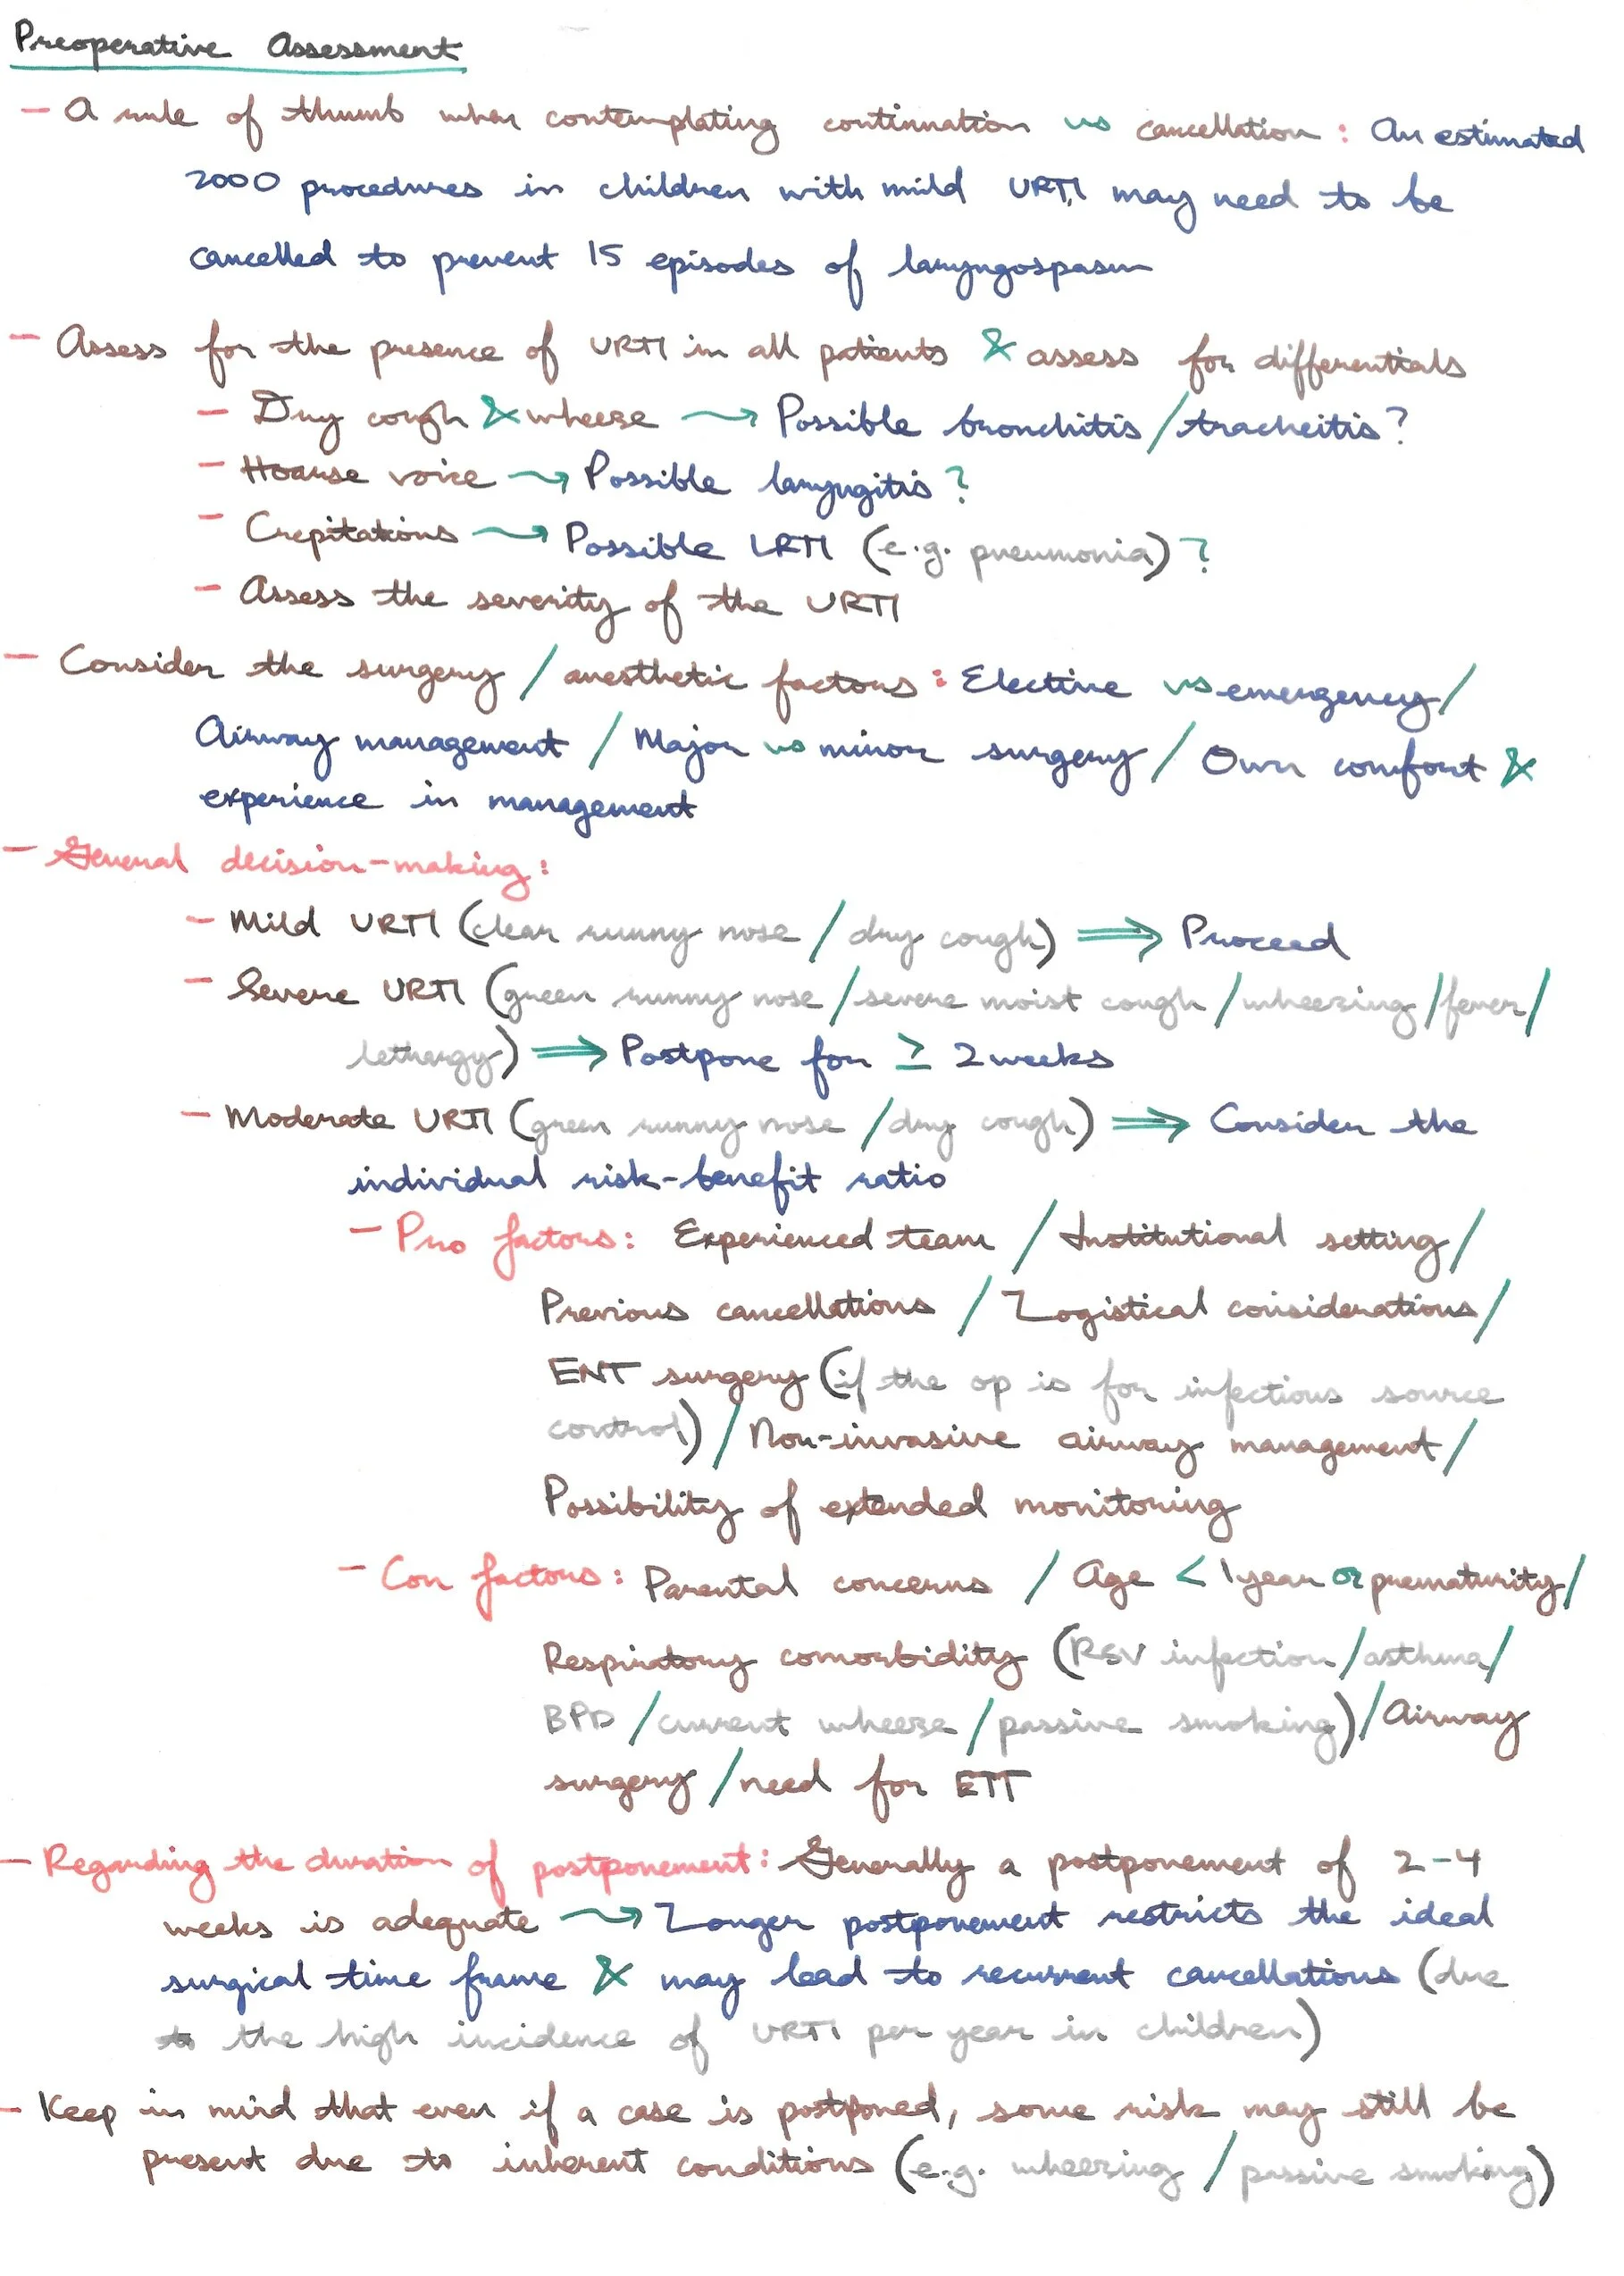 Preoperative Assessment
- A rule of thumb when contemplating continuation vs cancellation : An estimated
2000 procedures in children with mild URTI may need to be
cancelled to prevent 15 episodes of laryngospasm
- Assess for the presence of URTI in all patients & assess for differentials
- Dry cough & wheeze → Possible bronchitis / tracheitis ?
- Hoarse voice → Possible laryngitis ?
- Crepitations → Possible LRTI (e.g. pneumonia) ?
- Assess the severity of the URTI
- Consider the surgery / anesthetic factors : Elective vs emergency /
Airway management / Major vs minor surgery / Own comfort &
experience in management
- General decision-making :
- Mild URTI (clear runny nose / dry cough) ⇒ Proceed
- Severe URTI (green runny nose / severe moist cough / wheezing / fever /
lethargy) ⇒ Postpone for ≥ 2 weeks
- Moderate URTI (green runny nose / dry cough) ⇒ Consider the
individual risk-benefit ratio
- Pro factors : Experienced team / Institutional setting /
Previous cancellations / Logistical considerations /
ENT surgery (if the op is for infectious source
control) / Non-invasive airway management /
Possibility of extended monitoring
- Con factors : Parental concerns / Age < 1 year or prematurity /
Respiratory comorbidity (RSV infection / asthma /
BPD / current wheeze / passive smoking) / Airway
surgery / need for ETT
- Regarding the duration of postponement : Generally a postponement of 2-4
weeks is adequate → Longer postponement restricts the ideal
surgical time frame & may lead to recurrent cancellations (due
to the high incidence of URTI per year in children)
- Keep in mind that even if a case is postponed, some risk may still be
present due to inherent conditions (e.g. wheezing / passive smoking)